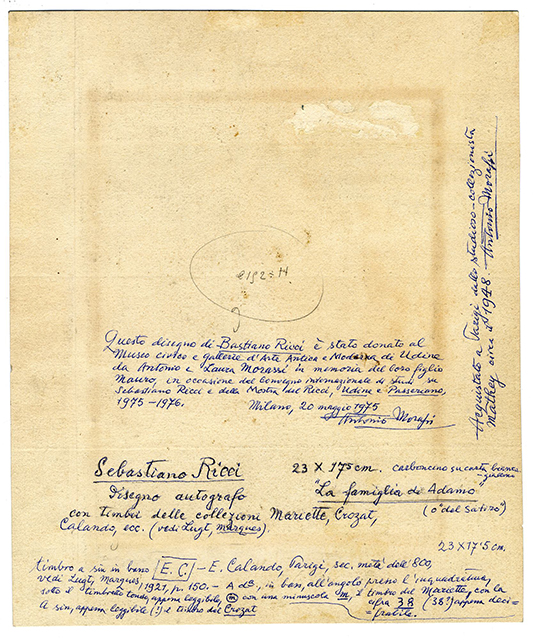 Acquistato a Parigi dallo studioso-collezionista
Mathey circa il 1948. - Antonio Morassi
Questo disegno di Bastiano Ricci è stato donato al
Museo civico e gallerie d'Arte Antica e Moderna di Udine
da Antonio e Laura Morassi in memoria del loro figlio
Mauro, in occasione del Convegno internazionale di studi su
Sebastiano Ricci e della Mostra sul Ricci, Udine e Passeriano,
1975-1976.
Milano, 20 maggio 1975
Antonio Morassi
Sebastiano Ricci 23 X 175 cm. carboncino su carta bianca-
Disegno autografo "La famiglia di Adamo"
con timbri delle collezioni Mariette, Crozat, (o "del Satiro")
Calando, ecc. (vedi Lugt, marques).
23 X 17'5 cm.
timbro a sin in basso E.C. - E. Calando, Parigi, sec. metà dell'800,
vedi Lugt, Marques, 1921, p. 150. - A ds., in bass, all'angolo presso l'inquadratura,
sotto il timbretto tondo, appena leggibile, m con una minuscola m, è timbro del Mariette, con la
cifra 38 (38?) appena deci=
A sin, appena leggibile (?) il timbro del Crozat frabile.